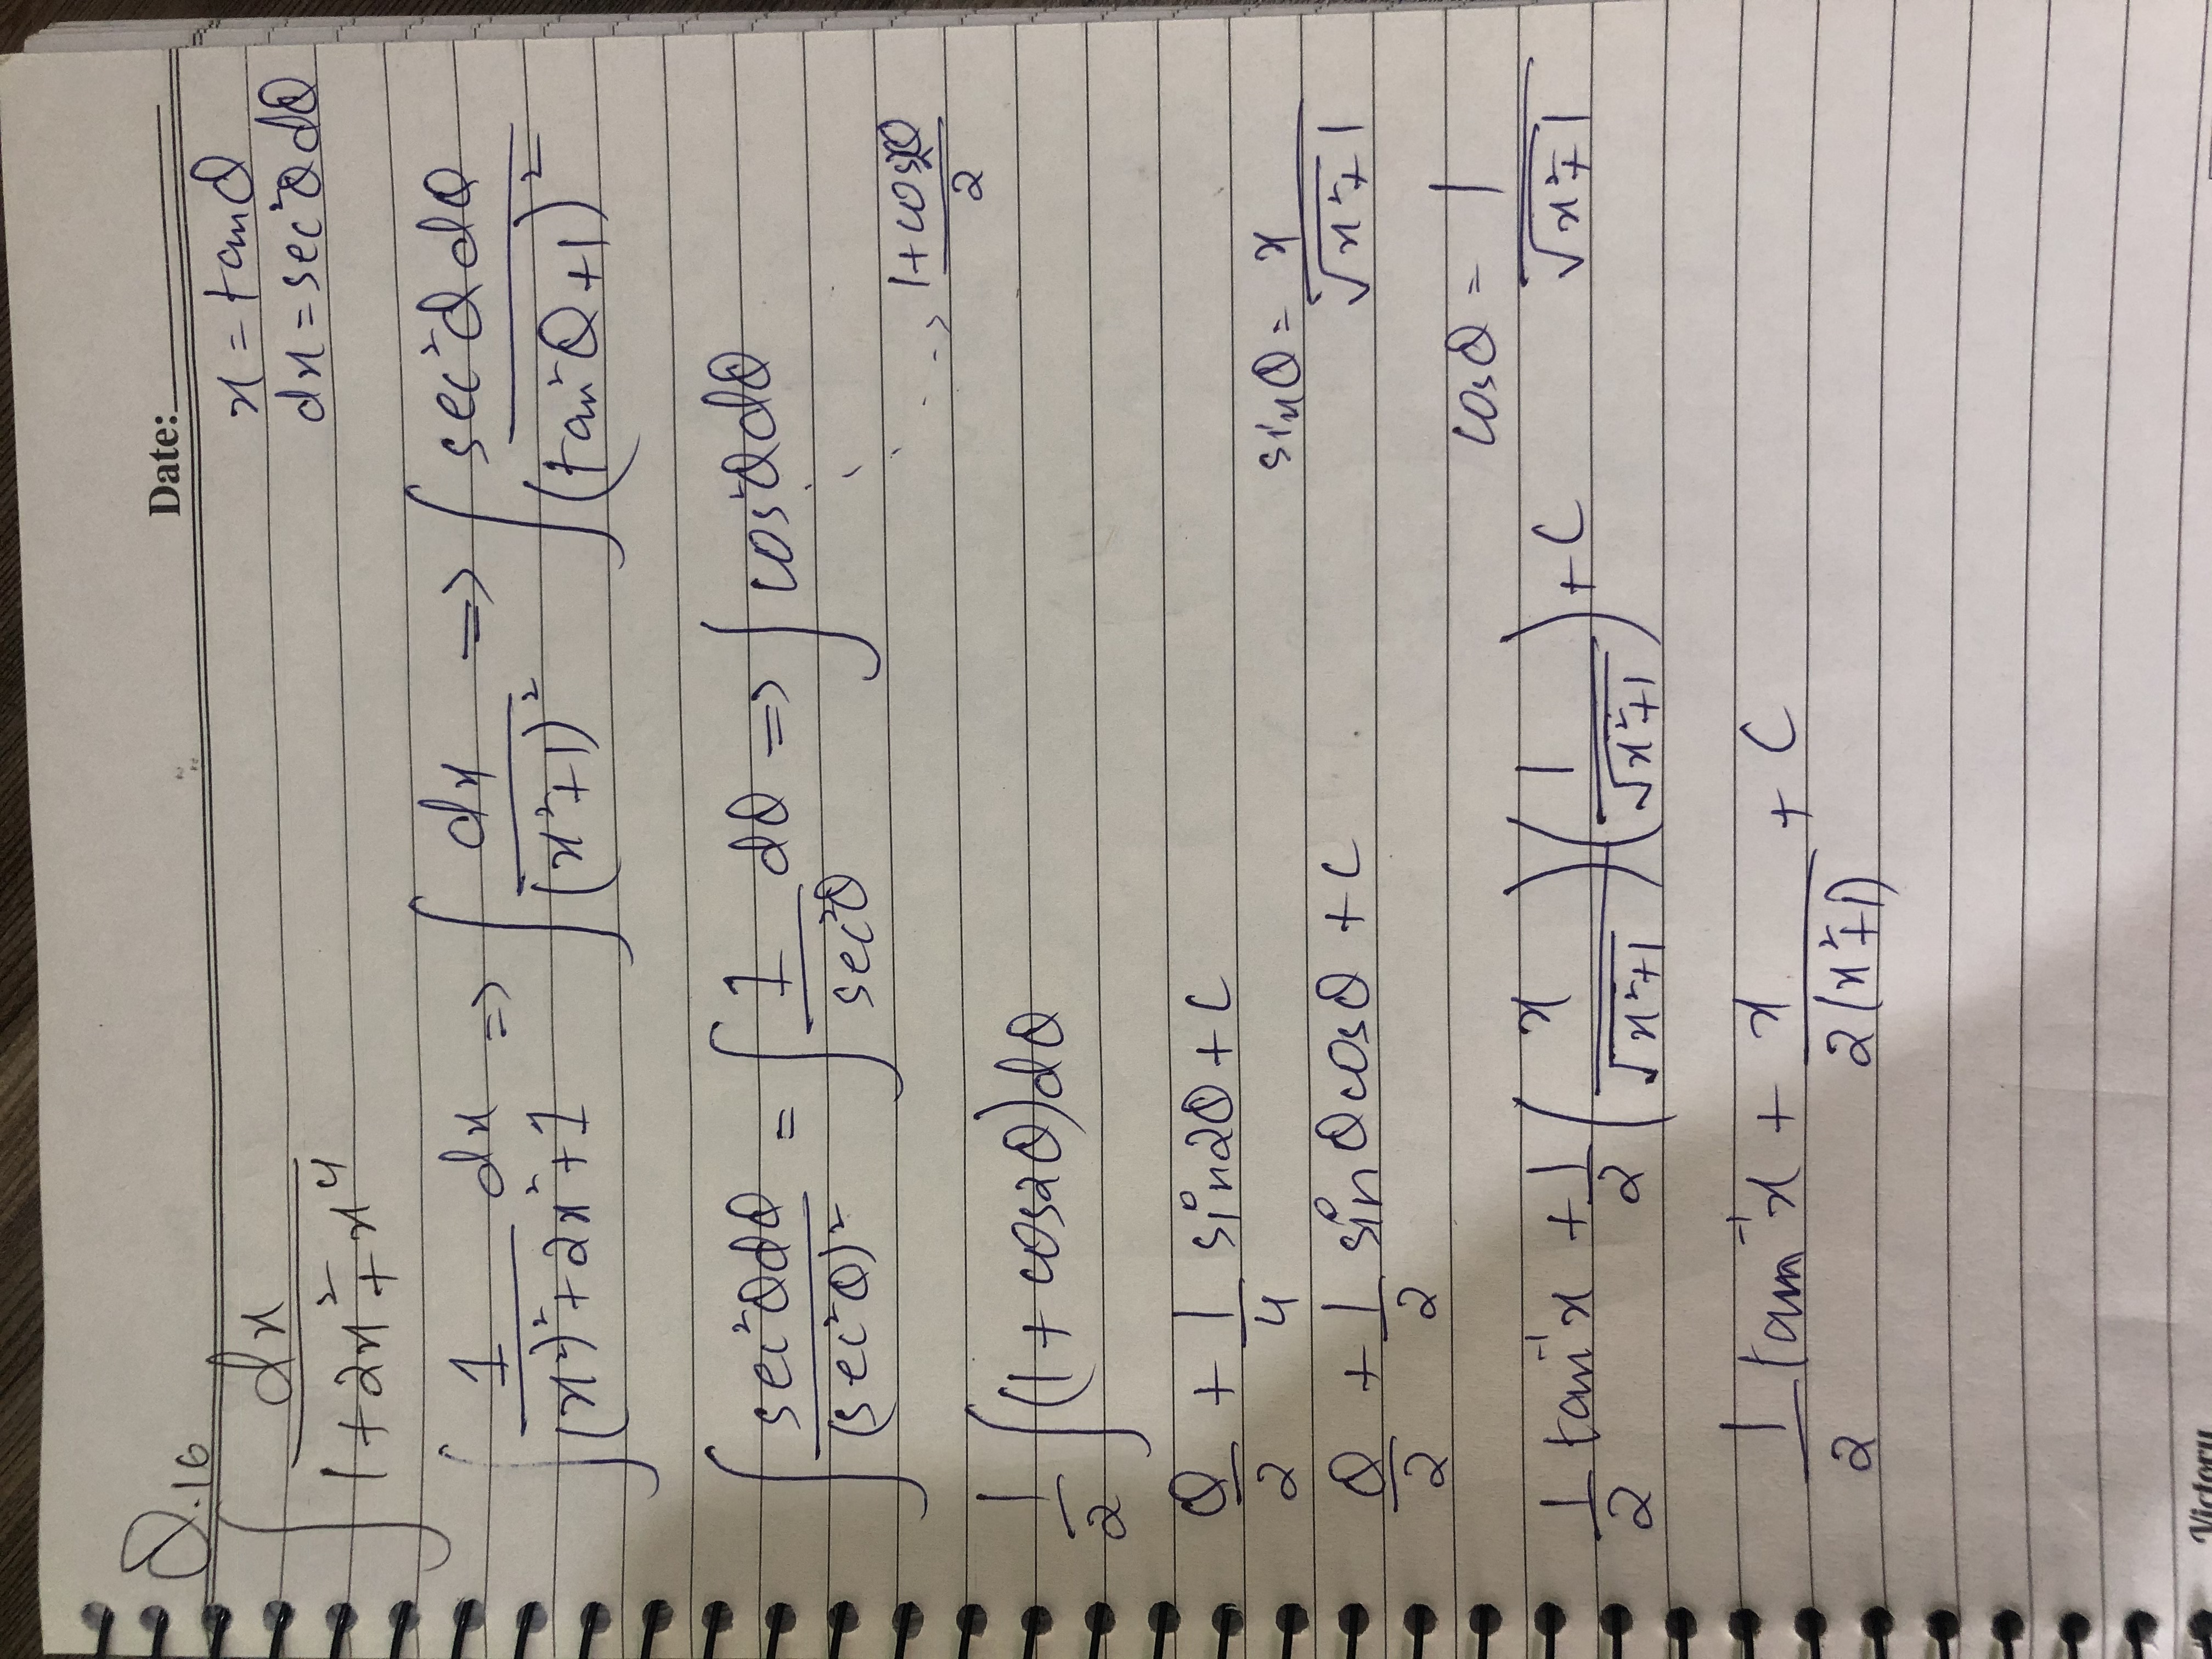 Q.16
Date:
∫ dx / (1+2x²+x⁴)
x = tanθ
dx = sec²θ dθ
∫ 1/((x²)²+2x²+1) dx => ∫ dx/(x²+1)² => ∫ sec²θ dθ/(tan²θ+1)²
∫ sec²θdθ/(sec²θ)² = ∫ 1/sec²θ dθ => ∫ cos²θdθ
--> (1+cos2θ)/2
1/2 ∫(1+cos2θ)dθ
θ/2 + 1/4 sin2θ + C
sinθ = x/√(x²+1)
θ/2 + 1/2 sinθcosθ + C
cosθ = 1/√(x²+1)
1/2 tan⁻¹x + 1/2 (x/√(x²+1)) (1/√(x²+1)) + C
1/2 tan⁻¹x + x/(2(x²+1)) + C
Victory